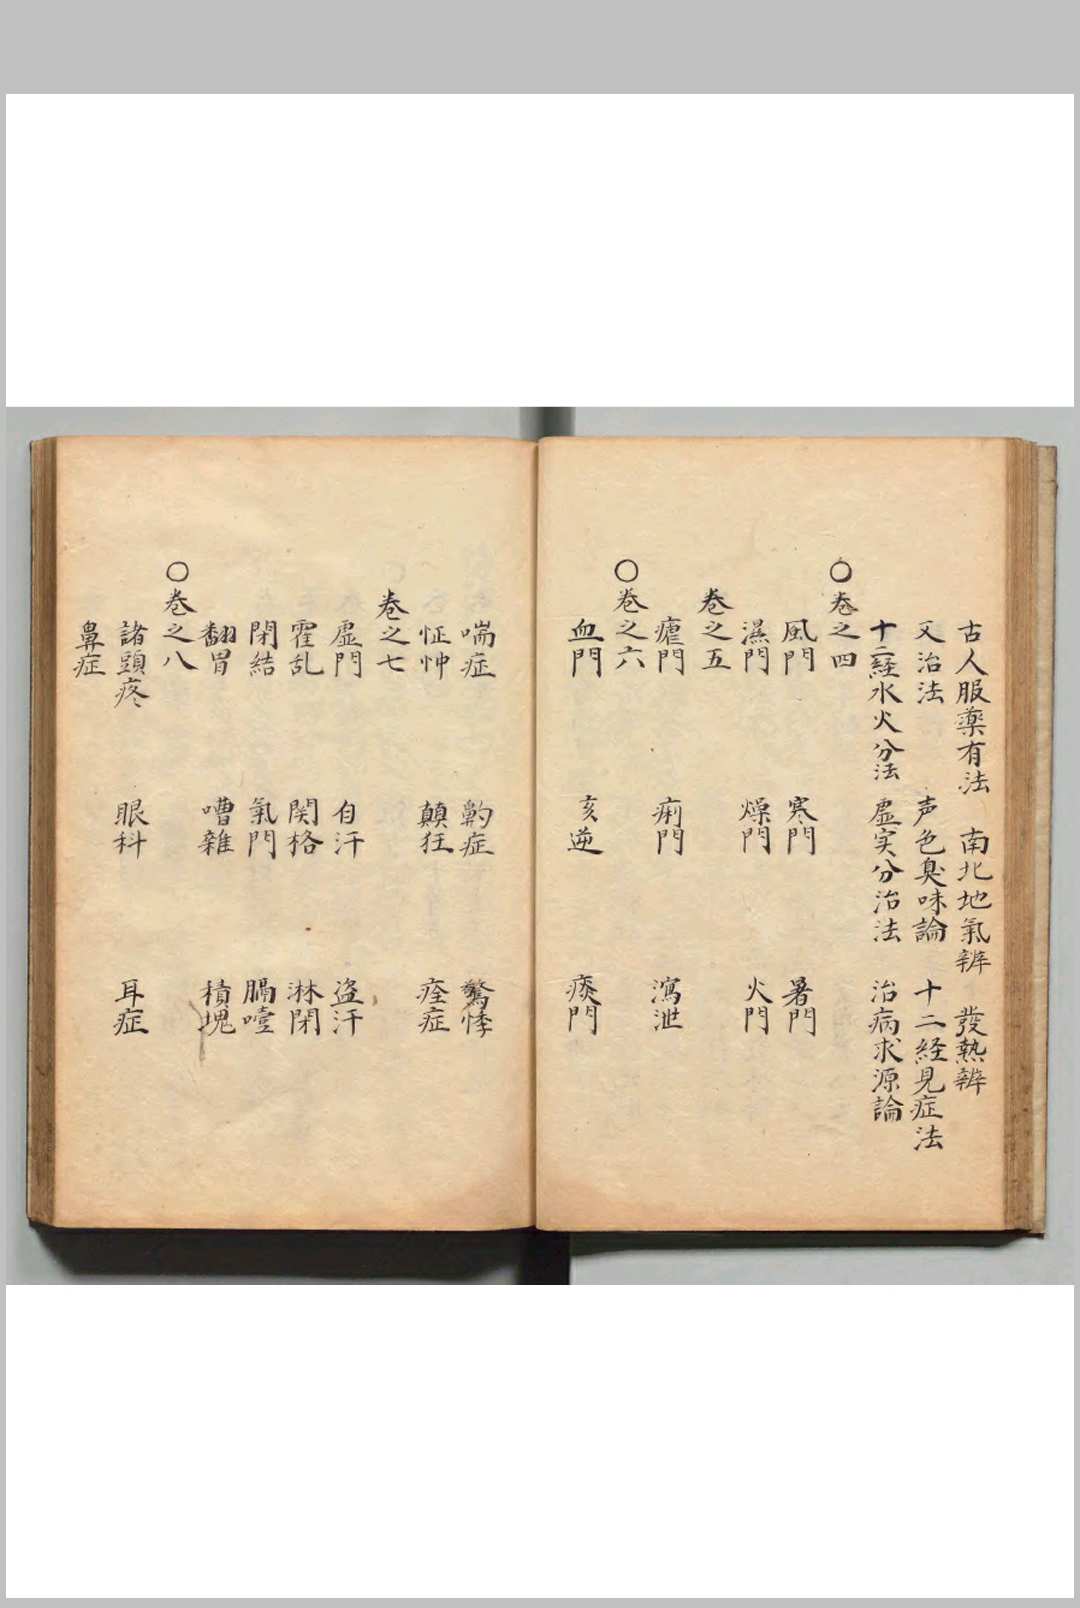 古人服藥有法　南北地氣辨　發熱辨
又治法　声色臭味論　十二経見症法
十二経水火分法　虚実分治法　治病求源論
○巻之四
風門　寒門　暑門
濕門　燥門　火門
巻之五
瘧門　痢門　瀉泄
○巻之六
血門　亥逆　痰門
喘症　齁症　驚悸
怔忡　顛狂　痓症
巻之七
虚門　自汗　盗汗
霍乱　関格　淋閉
閉結　氣門　膈噎
翻胃　嘈雜　積塊
○巻之八
諸頭疼　眼科　耳症
鼻症